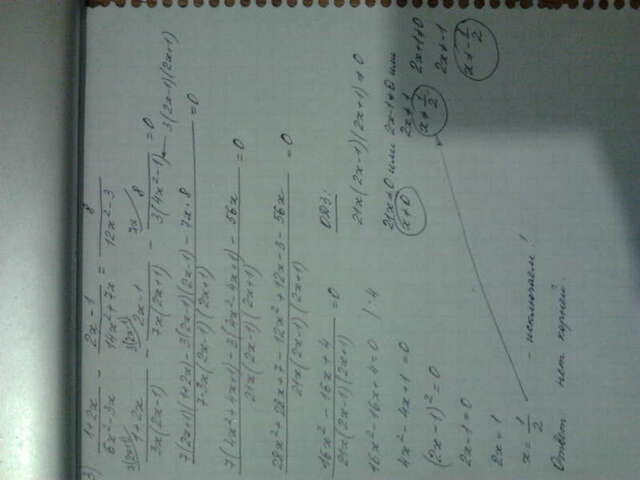 3) (1+2x)/(6x²-3x) - (2x-1)/(14x²+7x) = 8/(12x²-3)
(1+2x)/(3x(2x-1)) - (2x-1)/(7x(2x+1)) - 8/(3(4x²-1)) = 0
3(2x-1)(2x+1)
(7(2x+1)(1+2x)-3(2x-1)(2x-1)-7x·8)/(7·3x(2x-1)(2x+1)) = 0
(7(4x²+4x+1)-3(4x²-4x+1)-56x)/(21x(2x-1)(2x+1)) = 0
(28x²+28x+7-12x²+12x-3-56x)/(21x(2x-1)(2x+1)) = 0
(16x²-16x+4)/(21x(2x-1)(2x+1)) = 0
16x²-16x+4=0 /:4
4x²-4x+1=0
(2x-1)²=0
2x-1=0
2x=1
x=1/2 - исключаем!
Ответ: нет корней.
ОДЗ:
21x(2x-1)(2x+1)≠0
21x≠0 или 2x-1≠0 или 2x+1≠0
x≠0 2x≠1 2x≠-1
x≠1/2 x≠-1/2